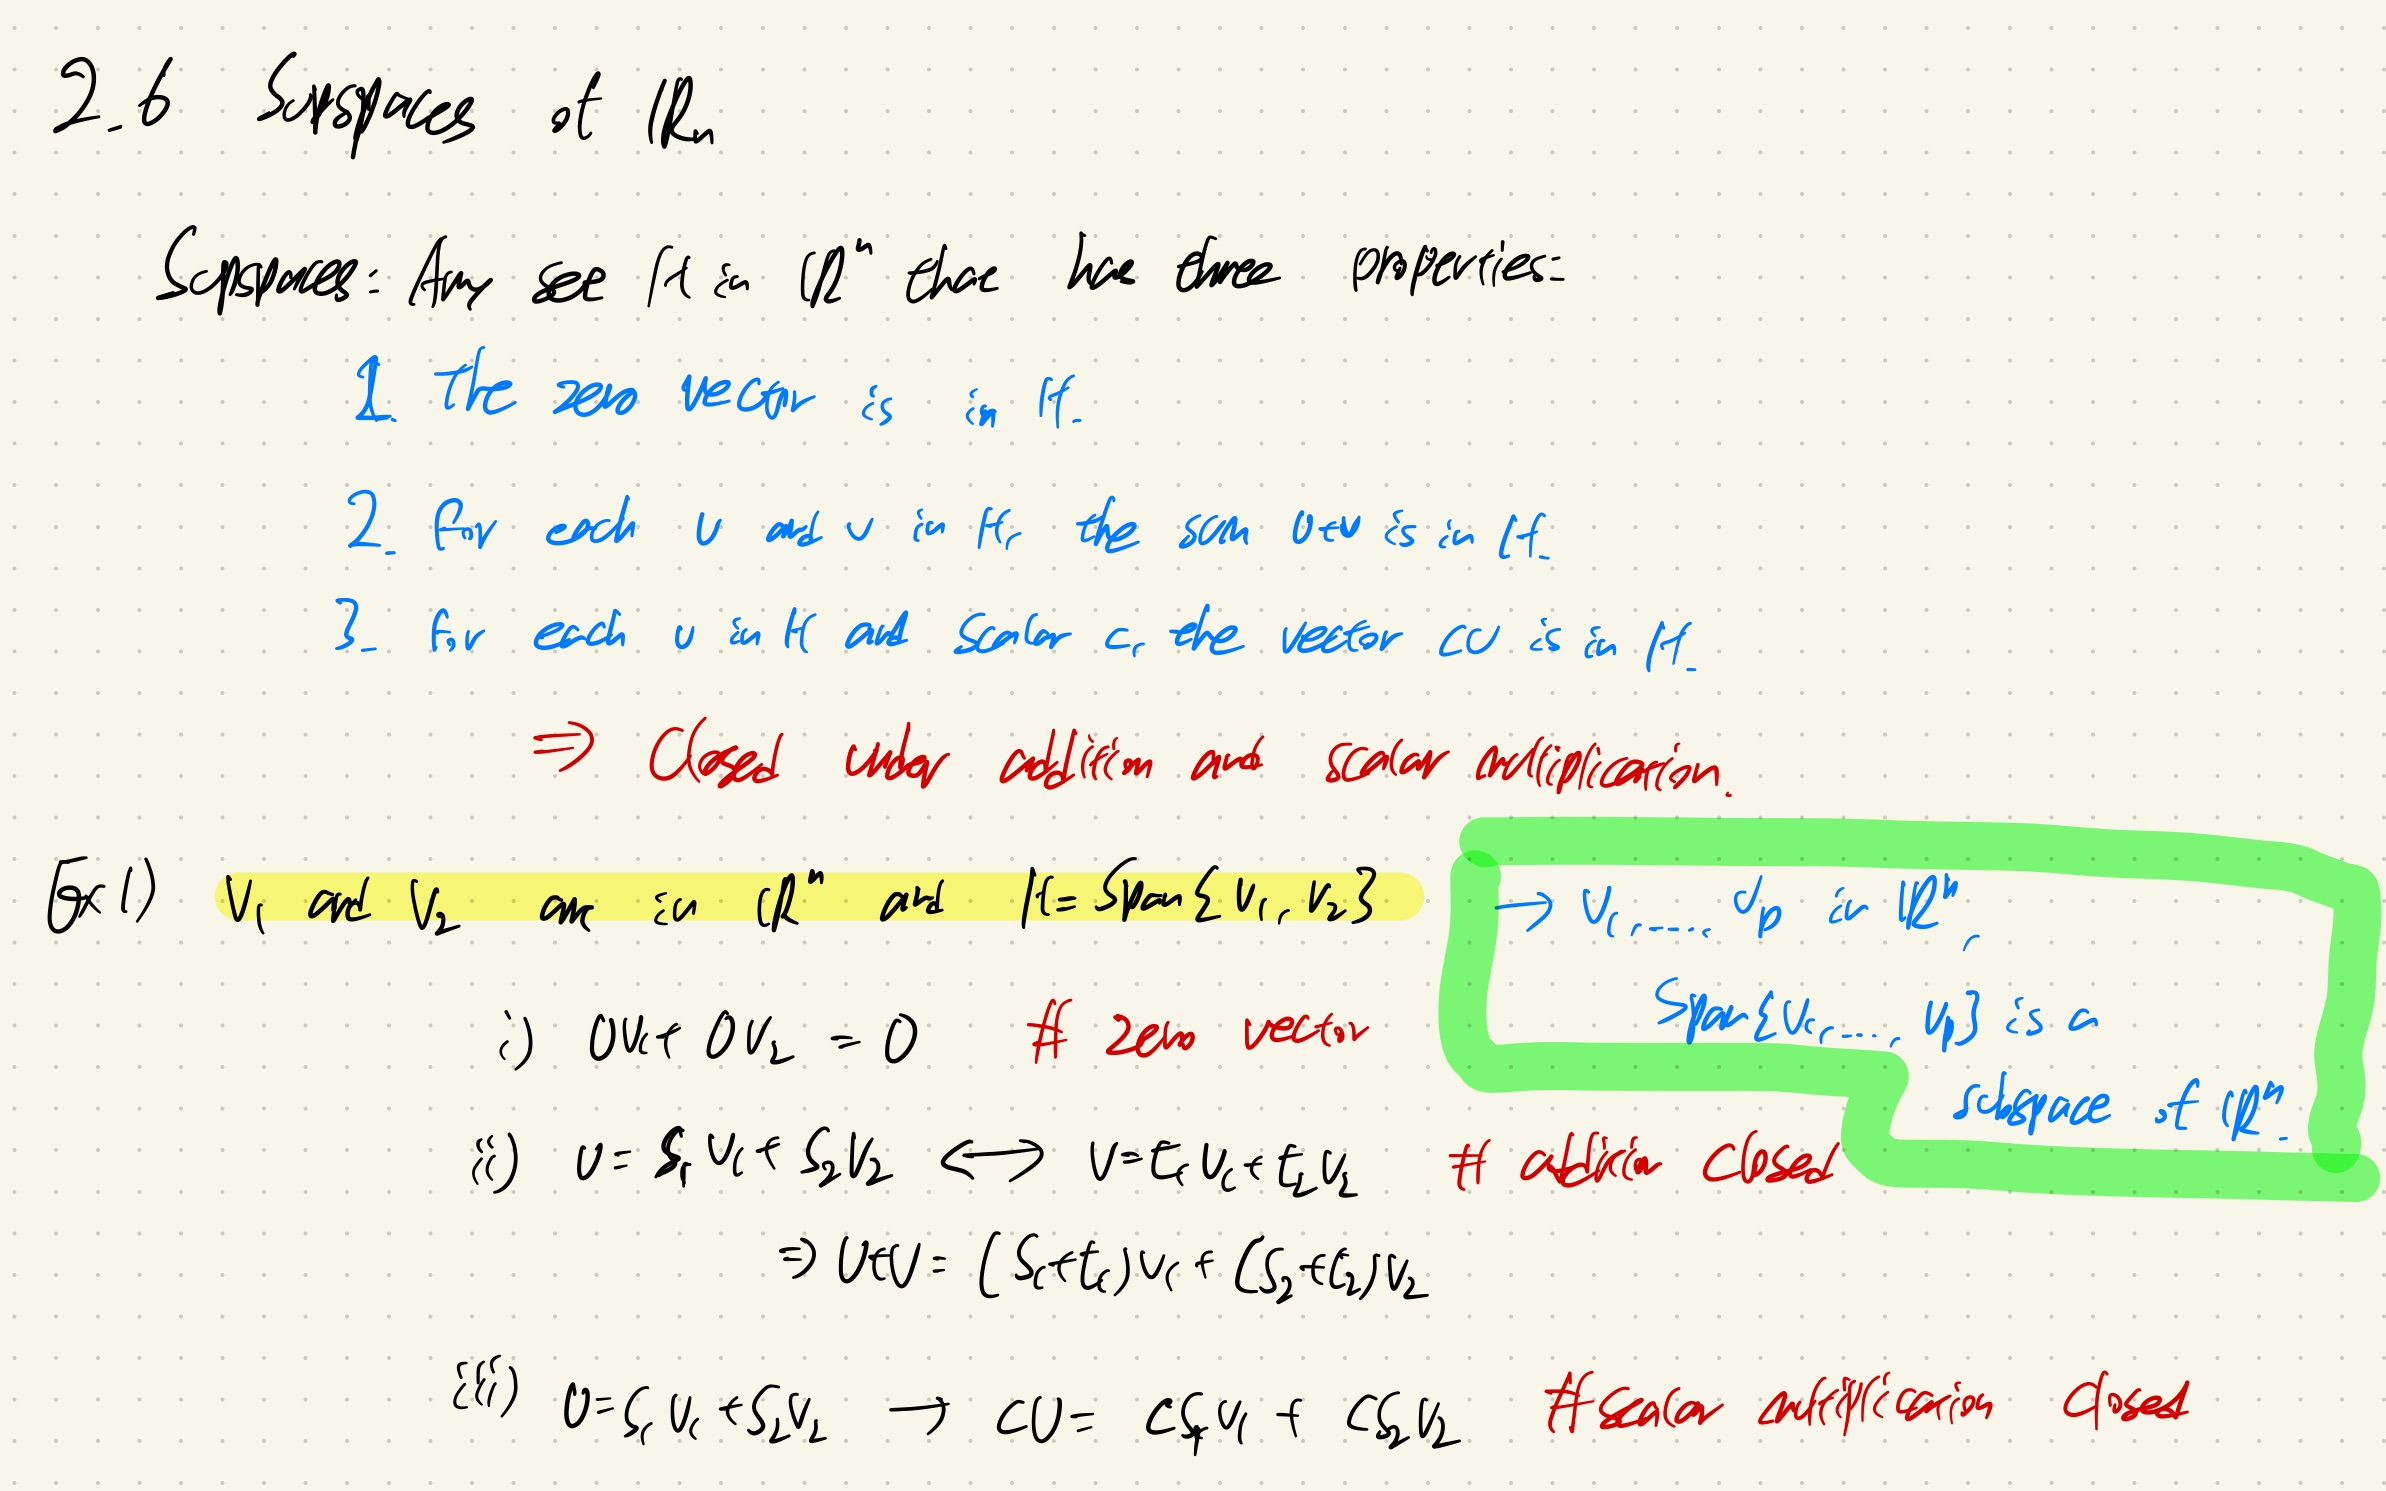 2.6 Subspaces of ℝn
Subspaces: Any set H in ℝⁿ that has three properties:
1. The zero vector is in H.
2. For each u and v in H, the sum u+v is in H.
3. For each u in H and scalar c, the vector cu is in H.
⇒ Closed under addition and scalar multiplication.
Ex 1) v₁ and v₂ are in ℝⁿ and H = Span{v₁, v₂}
→ v₁, ...., vp in ℝⁿ,
Span{v₁, ...., vp} is a
subspace of ℝⁿ.
i) 0v₁ + 0v₂ = 0 # zero vector
ii) u = s₁v₁ + s₂v₂ ↔ v = t₁v₁ + t₂v₂ # addition closed
⇒ u+v = (s₁+t₁)v₁ + (s₂+t₂)v₂
iii) u = s₁v₁ + s₂v₂ → cu = cs₁v₁ + cs₂v₂ # scalar multiplication closed